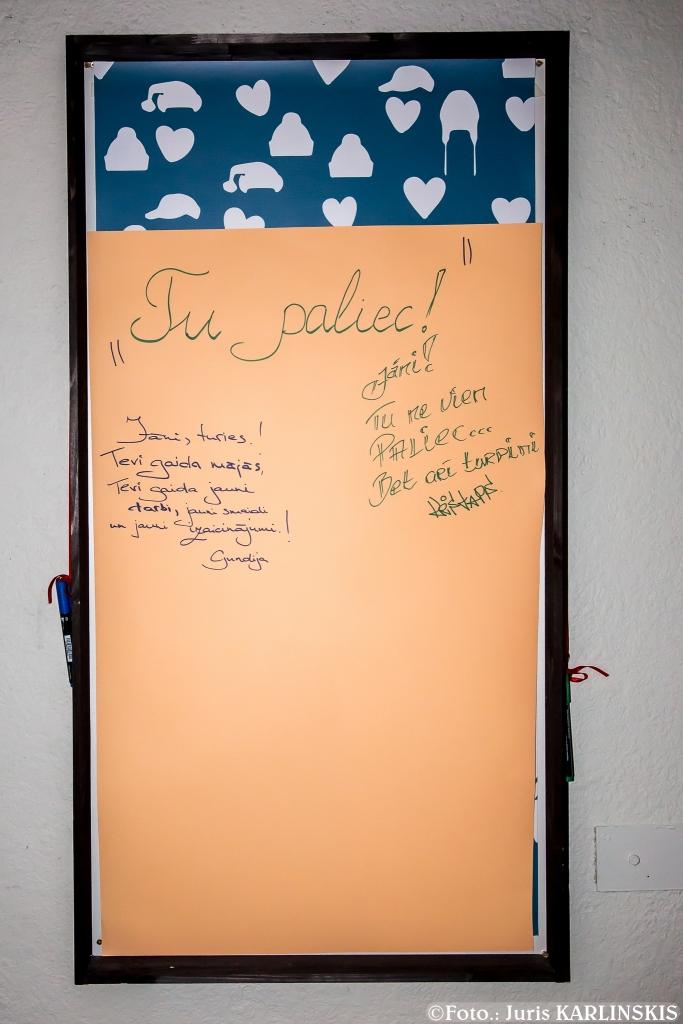 "Tu paliec!"
Jāni, turies!
Tevi gaida mājās,
Tevi gaida jauni
darbi, jauni smaidi
un jauni izaicinājumi!
Gundija
Jāni!
Tu ne vien
PALiec...
Bet arī turpini
©Foto.: Juris KARLINSKIS